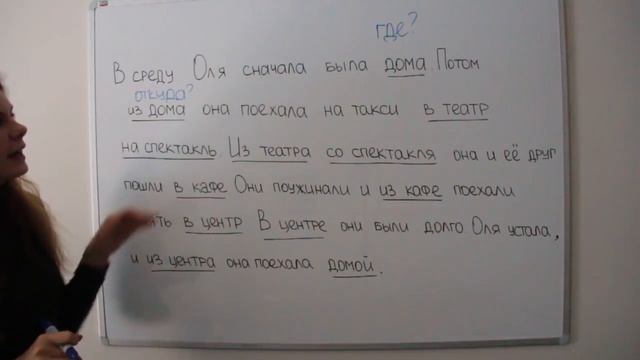 где?
В среду Оля сначала была дома. Потом
откуда?
из дома она поехала на такси в театр
на спектакль. Из театра со спектакля она и её друг
пошли в кафе. Они поужинали и из кафе поехали
в центр. В центре они были долго. Оля устала,
и из центра она поехала домой.